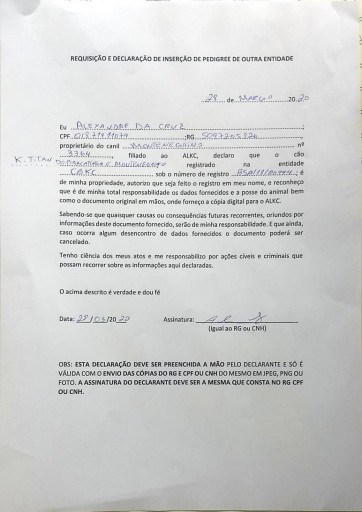 REQUISIÇÃO E DECLARAÇÃO DE INSERÇÃO DE PEDIGREE DE OUTRA ENTIDADE
28 de MARÇO 20 20
Eu ALEXANDRE DA CRUZ ;
CPF ;RG ;
proprietário do canil MONTENEGRINO nº
3764, filiado ao ALKC, declaro que o cão
K. TITAN registrado na entidade
CBKC sob o número de registro ; é
de minha propriedade, autorizo que seja feito o registro em meu nome, e reconheço
que é de minha total responsabilidade os dados fornecidos e a posse do animal bem
como o documento original em mãos, onde forneço a cópia digital para o ALKC.
Sabendo-se que quaisquer causas ou consequências futuras recorrentes, oriundos por
informações deste documento fornecido, serão de minha responsabilidade. E que ainda,
caso ocorra algum desencontro de dados fornecidos o documento poderá ser
cancelado.
Tenho ciência dos meus atos e me responsabilizo por ações cíveis e criminais que
possam recorrer sobre as informações aqui declaradas.
O acima descrito é verdade e dou fé
Data: 28/03/20 20 Assinatura:
(Igual ao RG ou CNH)
OBS: ESTA DECLARAÇÃO DEVE SER PREENCHIDA A MÃO PELO DECLARANTE E SÓ É
VÁLIDA COM O ENVIO DAS CÓPIAS DO RG E CPF OU CNH DO MESMO EM JPEG, PNG OU
FOTO. A ASSINATURA DO DECLARANTE DEVE SER A MESMA QUE CONSTA NO RG CPF
OU CNH.